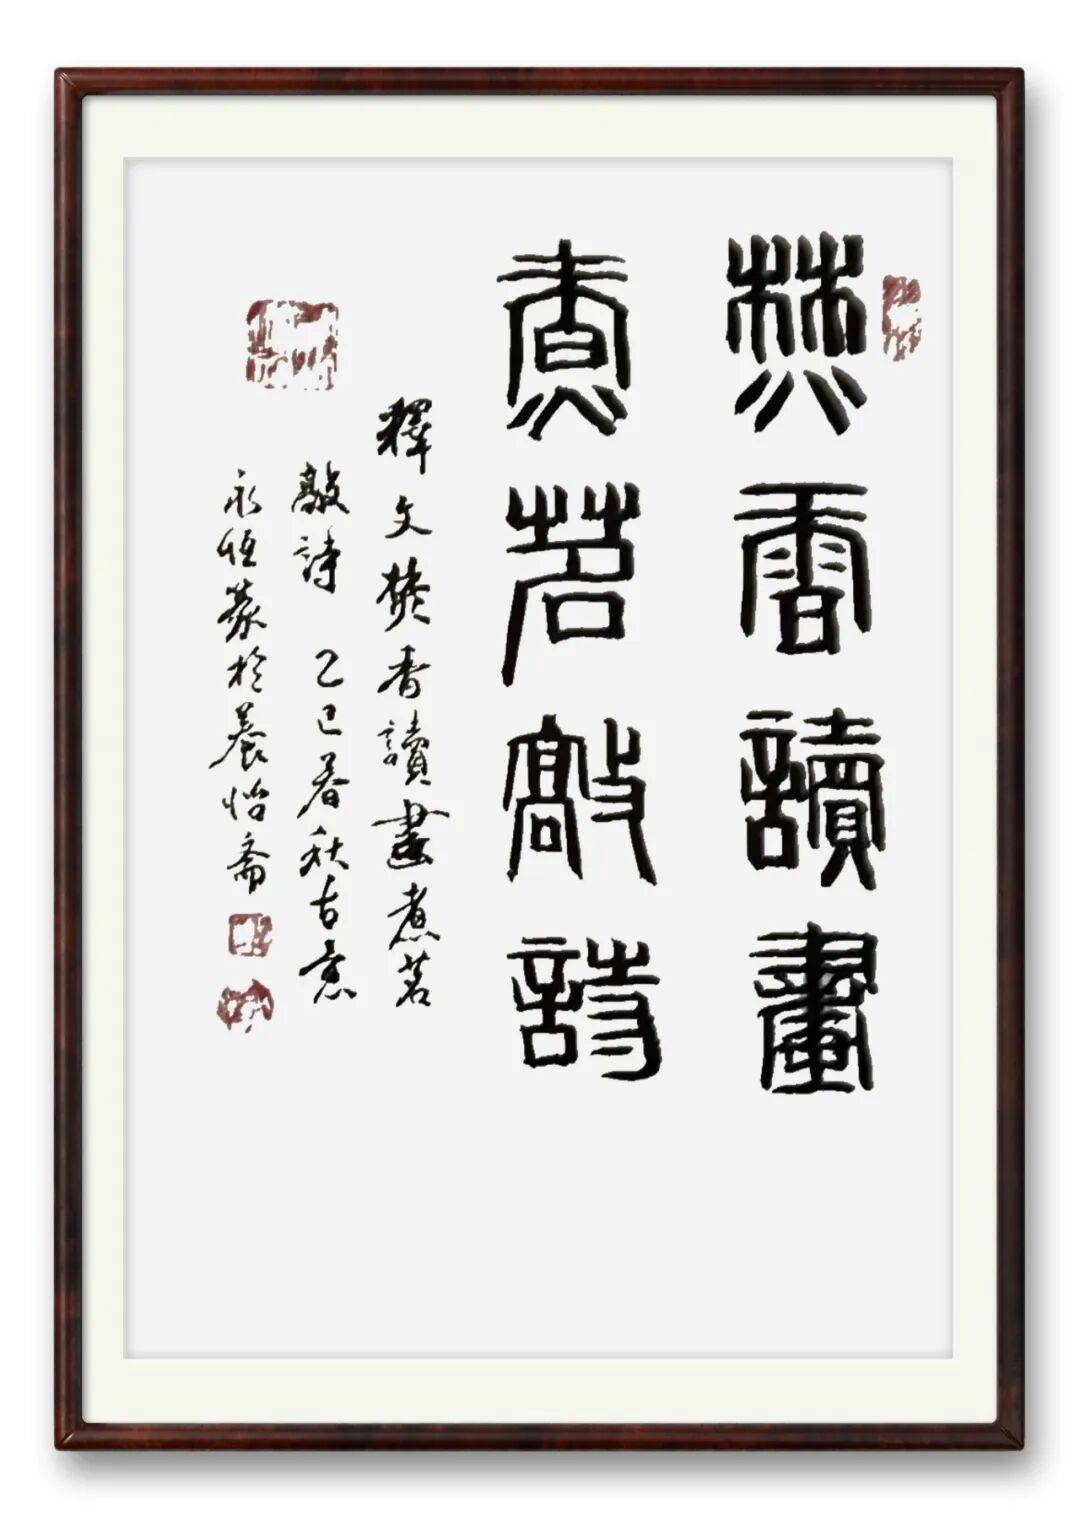 焚香讀畫
煮茗敲詩
釋文焚香讀畫煮茗
敲詩 乙巳春秋古意
永恒篆於晨怡斋